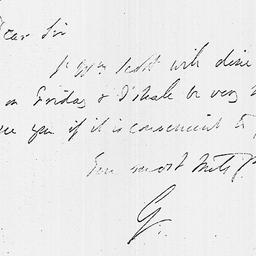 Dear Sir
will dine
on Friday & I shall be very
see you if it is convenient to
Your most
G.